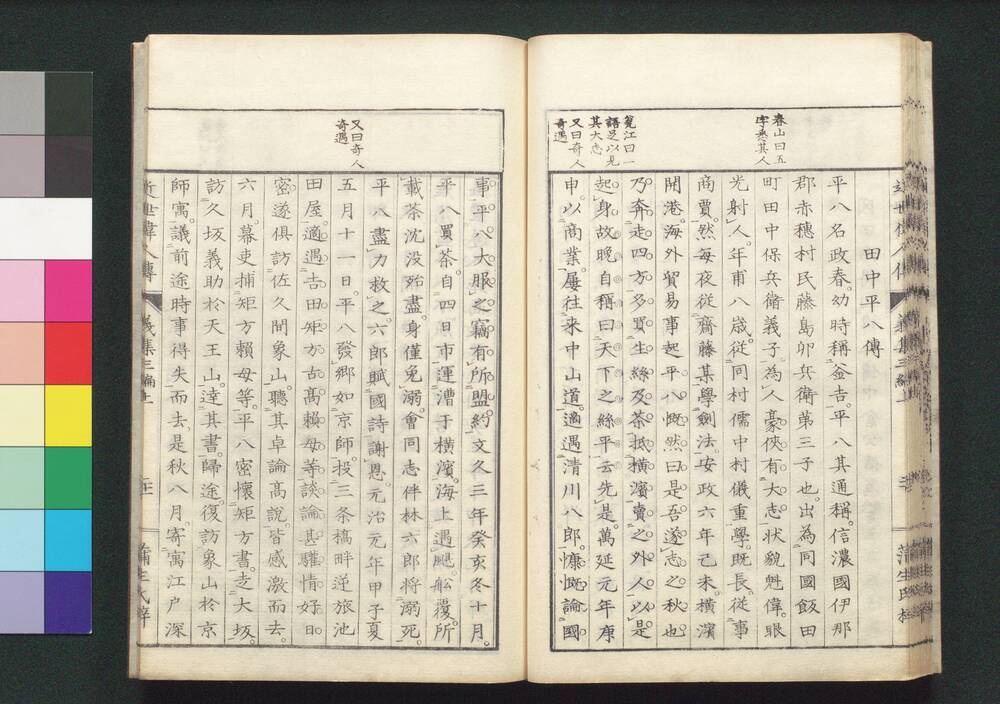 春山曰五
字悉其人
筧江曰一
語足以見
其大志
又曰奇人
奇遇
田中平八傳
平八名政春。幼時稱釜吉。平八其通稱。信濃國伊那
郡赤穂村民藤島卯兵衛第三子也。出為同國飯田
町田中保兵衛義子。為人豪俠有大志。狀貌魁偉。眼
光射人。年甫八歳。從同村儒中村儀重學。既長。從事
商賈。然每夜從齋藤某學劍法。安政六年己未。橫濱
開港。海外貿易事起。平八慨然曰。是吾遂志之秋也。
乃奔走四方。多買生絲及茶。抵橫濱賣之外人。以是
起身。故晚自稱曰天下之絲平云。先是。萬延元年庚
申。以商業屢往來中山道。適遇清川八郎。慷慨論國
事。平八大服之。竊有所盟約。文久三年癸亥冬十月。
平八買茶。自四日市運漕于橫濱。海上遇颶。船覆。所
載茶沈没殆盡。身僅免溺。會同志伴林六郎將溺死。
平八盡力救之。六郎賦國詩謝恩。元治元年甲子夏
五月十一日。平八發鄉如京師。投三条橋畔逆旅池
田屋。適遇吉田矩方古髙賴母等。談論甚驩。情好日
密。遂俱訪佐久間象山。聽其卓論髙說。皆感激而去。
六月。幕吏捕矩方賴母等。平八密懷矩方書。走大坂。
訪久坂義助於天王山。達其書。歸途復訪象山於京
師寓。議前途時事得失而去。是秋八月。寄寓江戸深
又曰奇人
奇遇
近世偉人傳
義集三編上
蒲生氏梓